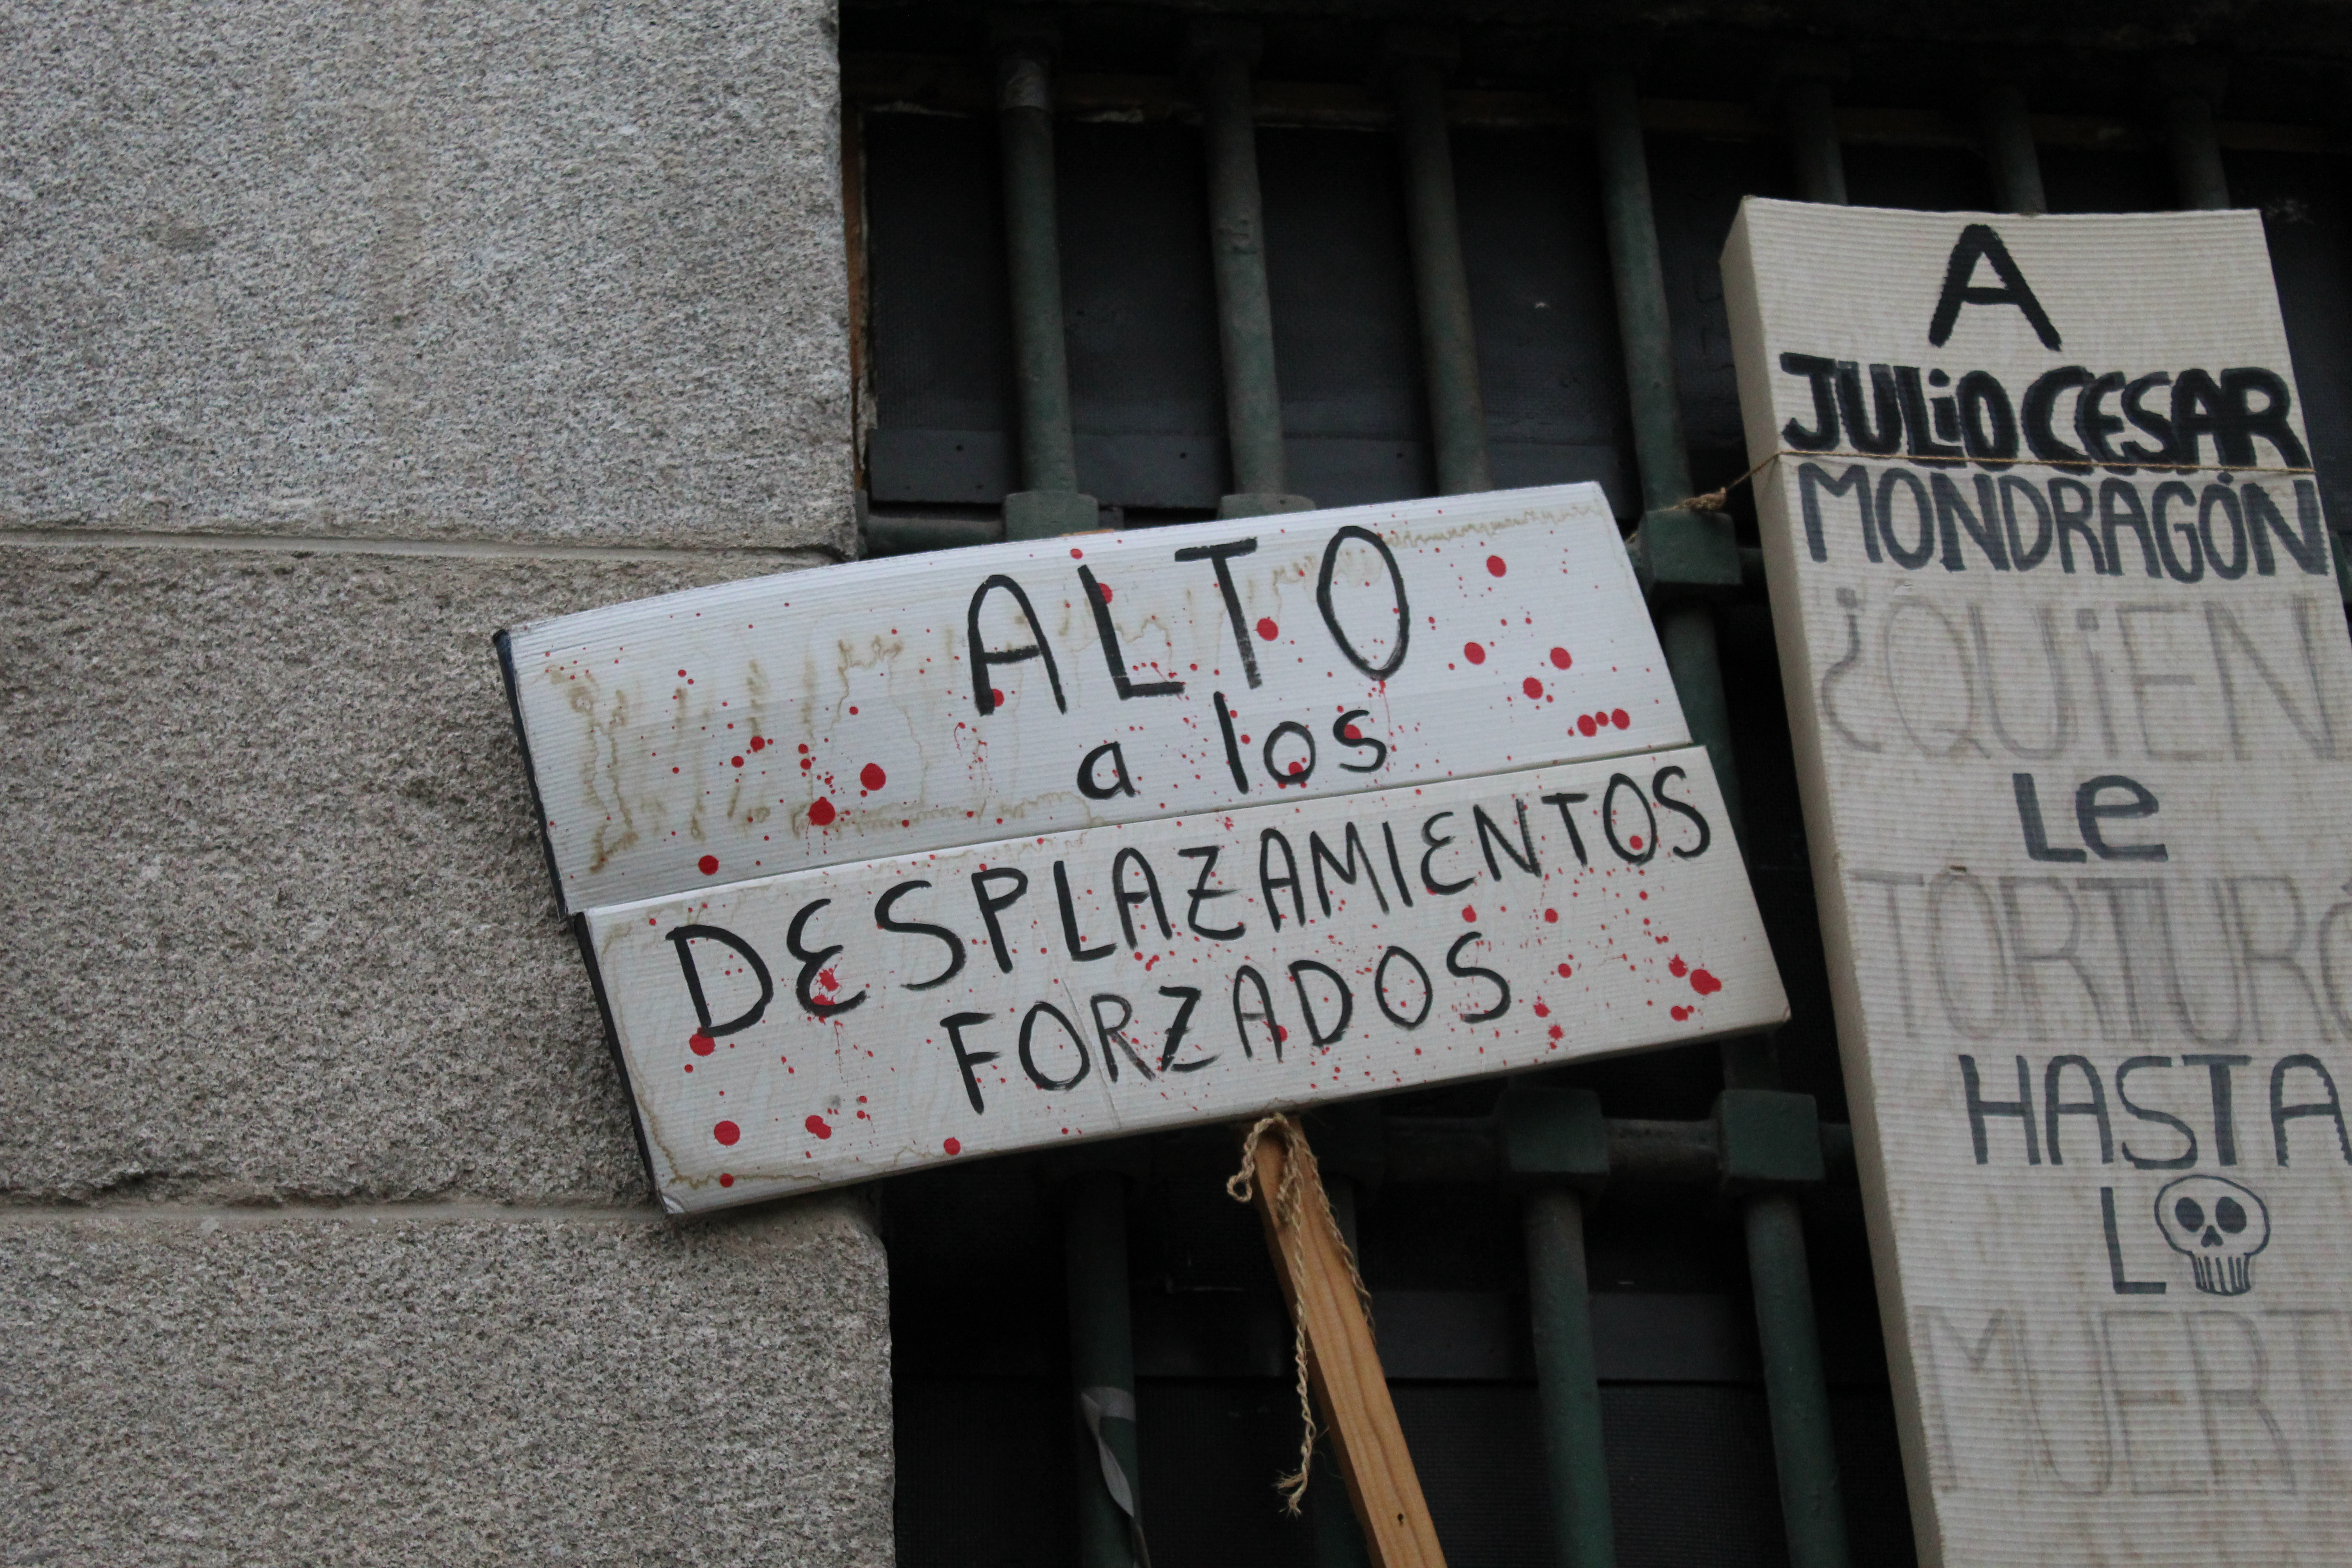 ALTO
a los
DESPLAZAMIENTOS
FORZADOS
A
JULiO CESAR
MONDRAGÓN
¿QUiEN
Le
TORTURÓ
HASTA
L
MUERT